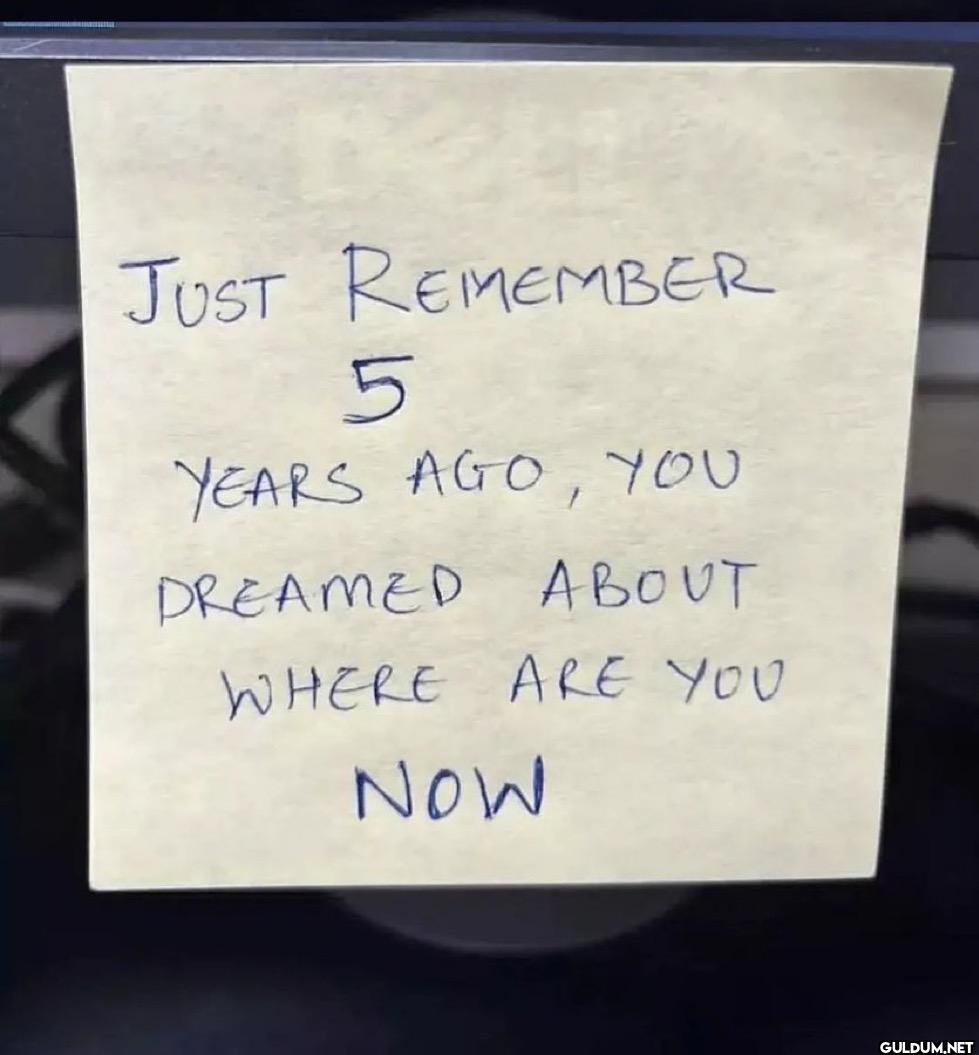 JUST REMEMBER
5
YEARS AGO, YOU
DREAMED ABOUT
WHERE ARE YOU
NOW
GULDUM.NET